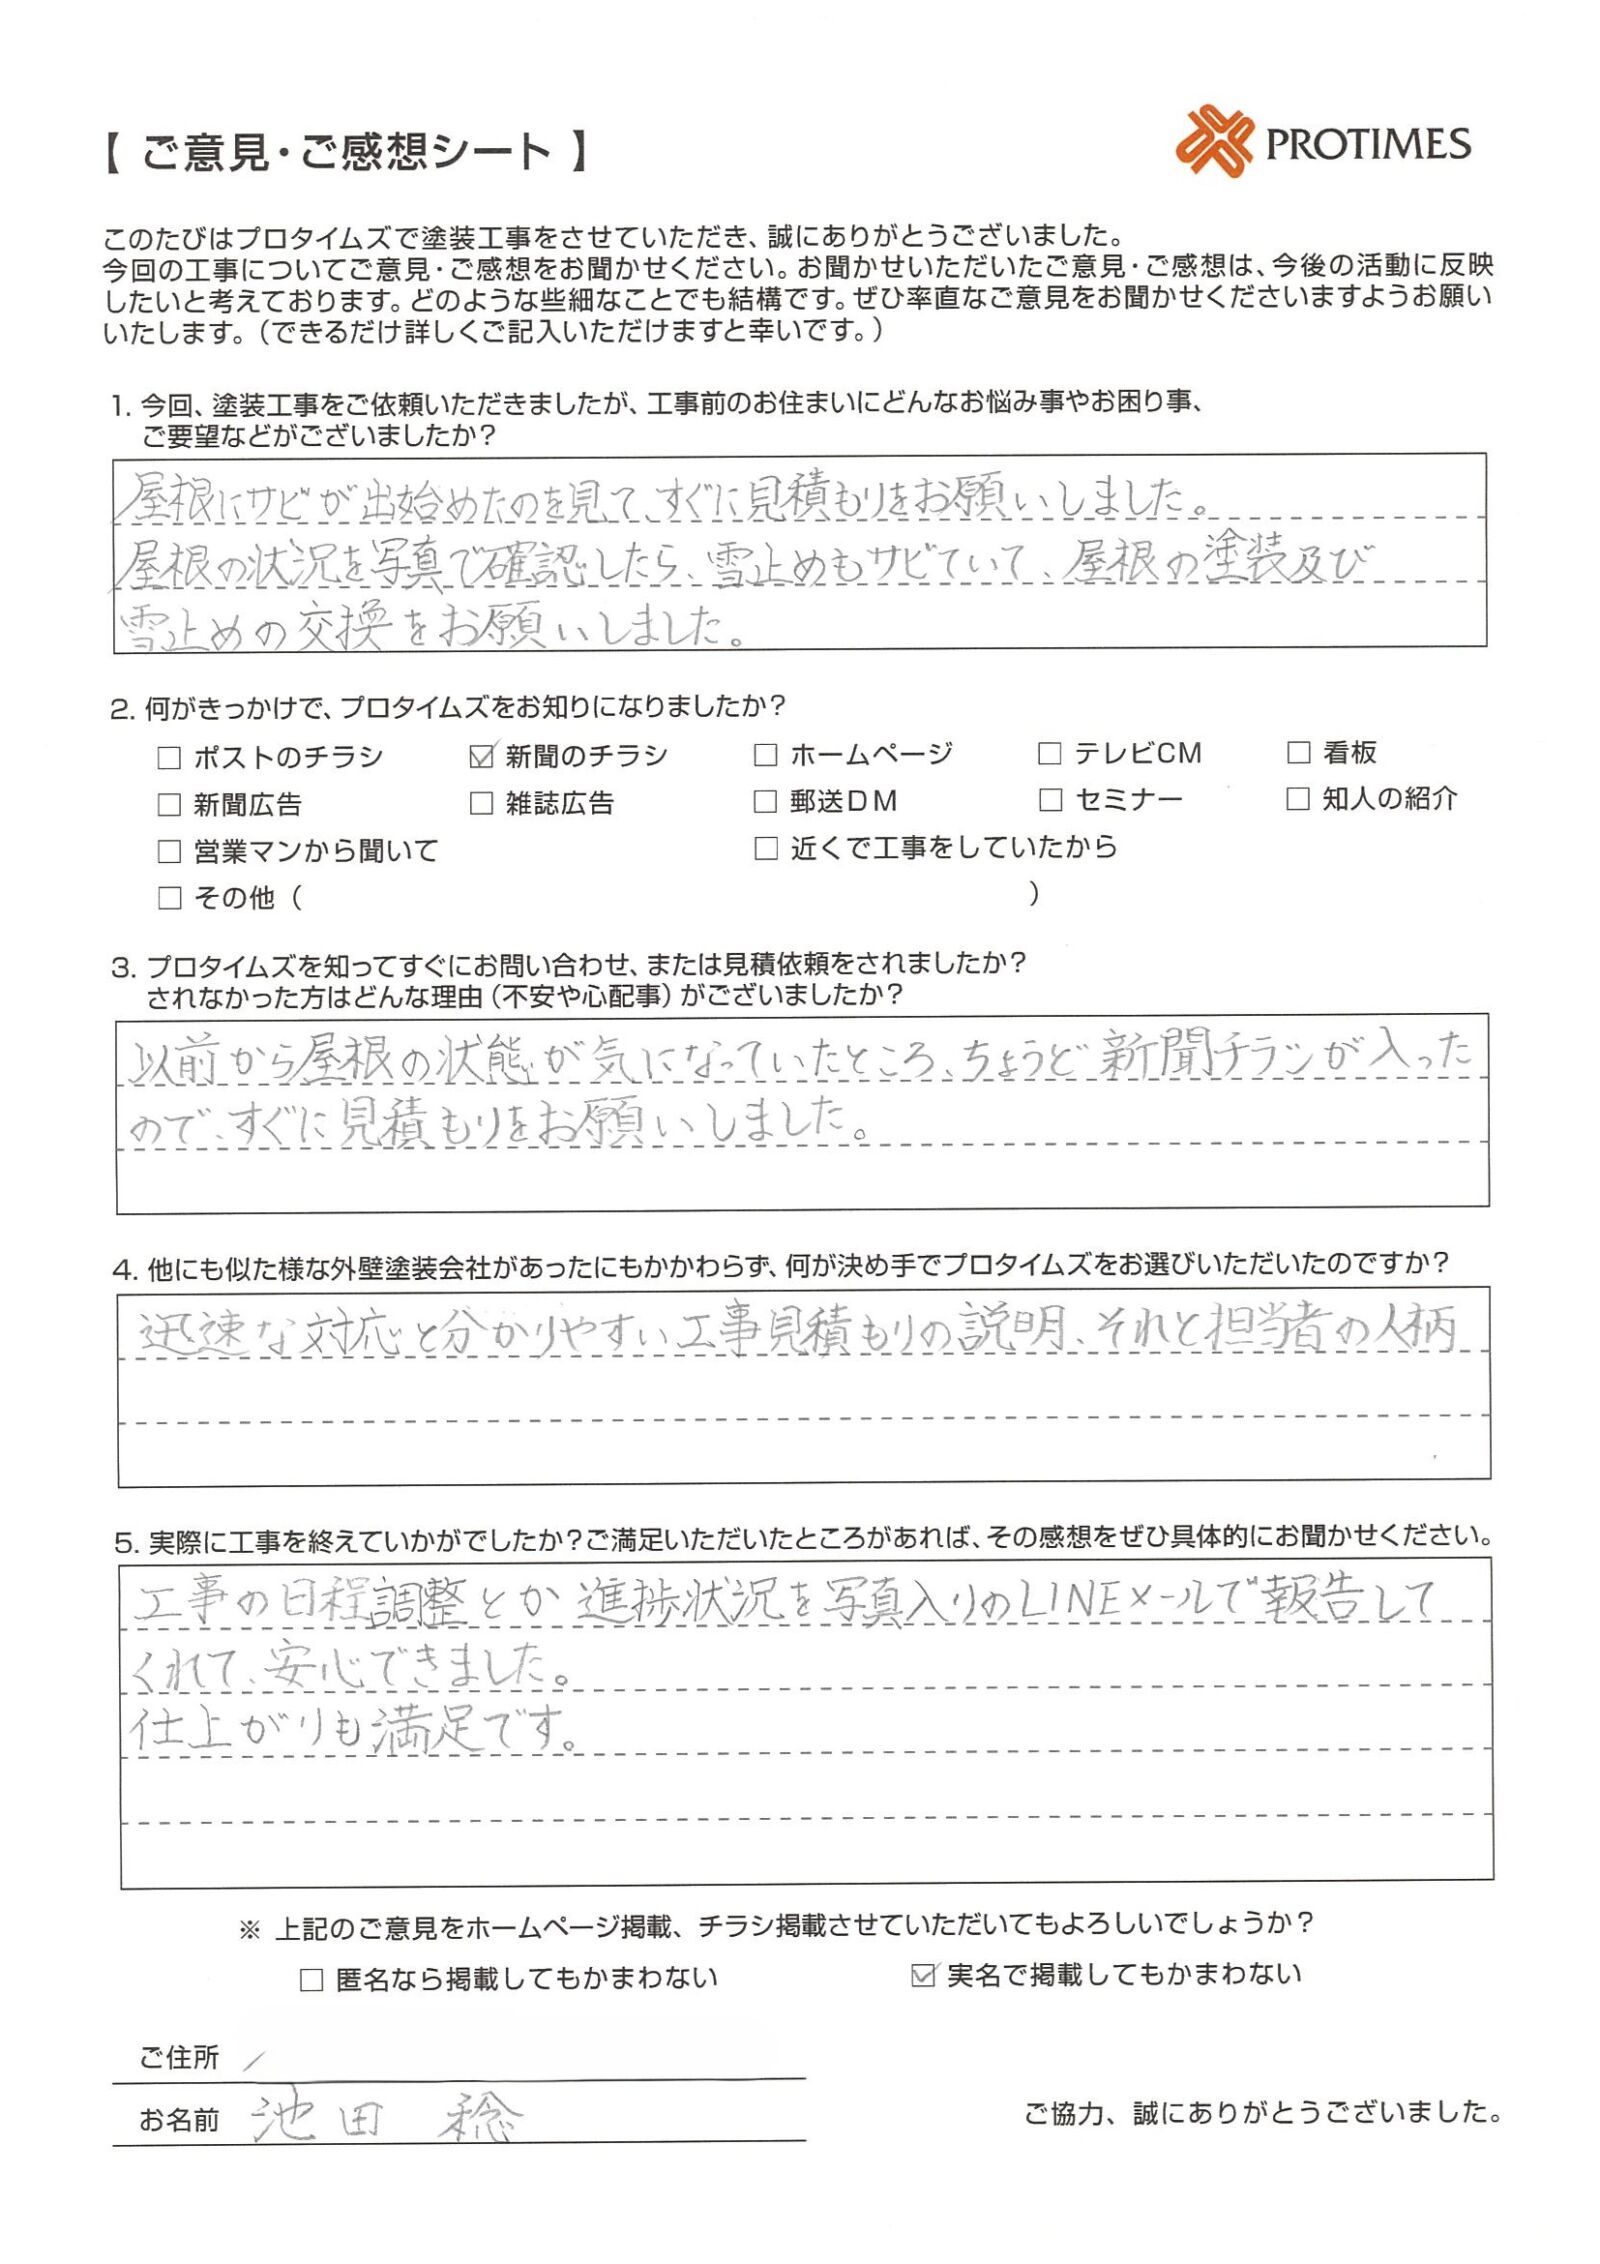 【 ご意見・ご感想シート 】
PROTIMES
このたびはプロタイムズで塗装工事をさせていただき、誠にありがとうございました。
今回の工事についてご意見・ご感想をお聞かせください。お聞かせいただいたご意見・ご感想は、今後の活動に反映
したいと考えております。どのような些細なことでも結構です。ぜひ率直なご意見をお聞かせくださいますようお願い
いたします。（できるだけ詳しくご記入いただけますと幸いです。）
1. 今回、塗装工事をご依頼いただきましたが、工事前のお住まいにどんなお悩み事やお困り事、
ご要望などがございましたか？
屋根にサビが出始めたのを見て、すぐに見積もりをお願いしました。
屋根の状況を写真で確認したら、雪止めもサビていて、屋根の塗装及び
雪止めの交換をお願いしました。
2. 何がきっかけで、プロタイムズをお知りになりましたか？
□ ポストのチラシ ☑ 新聞のチラシ □ ホームページ □ テレビCM □ 看板
□ 新聞広告 □ 雑誌広告 □ 郵送DM □ セミナー □ 知人の紹介
□ 営業マンから聞いて □ 近くで工事をしていたから
□ その他（ ）
3. プロタイムズを知ってすぐにお問い合わせ、または見積依頼をされましたか？
されなかった方はどんな理由（不安や心配事）がございましたか？
以前から屋根の状態が気になっていたところ、ちょうど新聞チラシが入った
ので、すぐに見積もりをお願いしました。
4. 他にも似た様な外壁塗装会社があったにもかかわらず、何が決め手でプロタイムズをお選びいただいたのですか？
迅速な対応と分かりやすい工事見積もりの説明、それと担当者の人柄
5. 実際に工事を終えていかがでしたか？ご満足いただいたところがあれば、その感想をぜひ具体的にお聞かせください。
工事の日程調整とか進捗状況を写真入りのLINEメールで報告して
くれて、安心できました。
仕上がりも満足です。
※ 上記のご意見をホームページ掲載、チラシ掲載させていただいてもよろしいでしょうか？
□ 匿名なら掲載してもかまわない ☑ 実名で掲載してもかまわない
ご住所
お名前 池田 稔
ご協力、誠にありがとうございました。